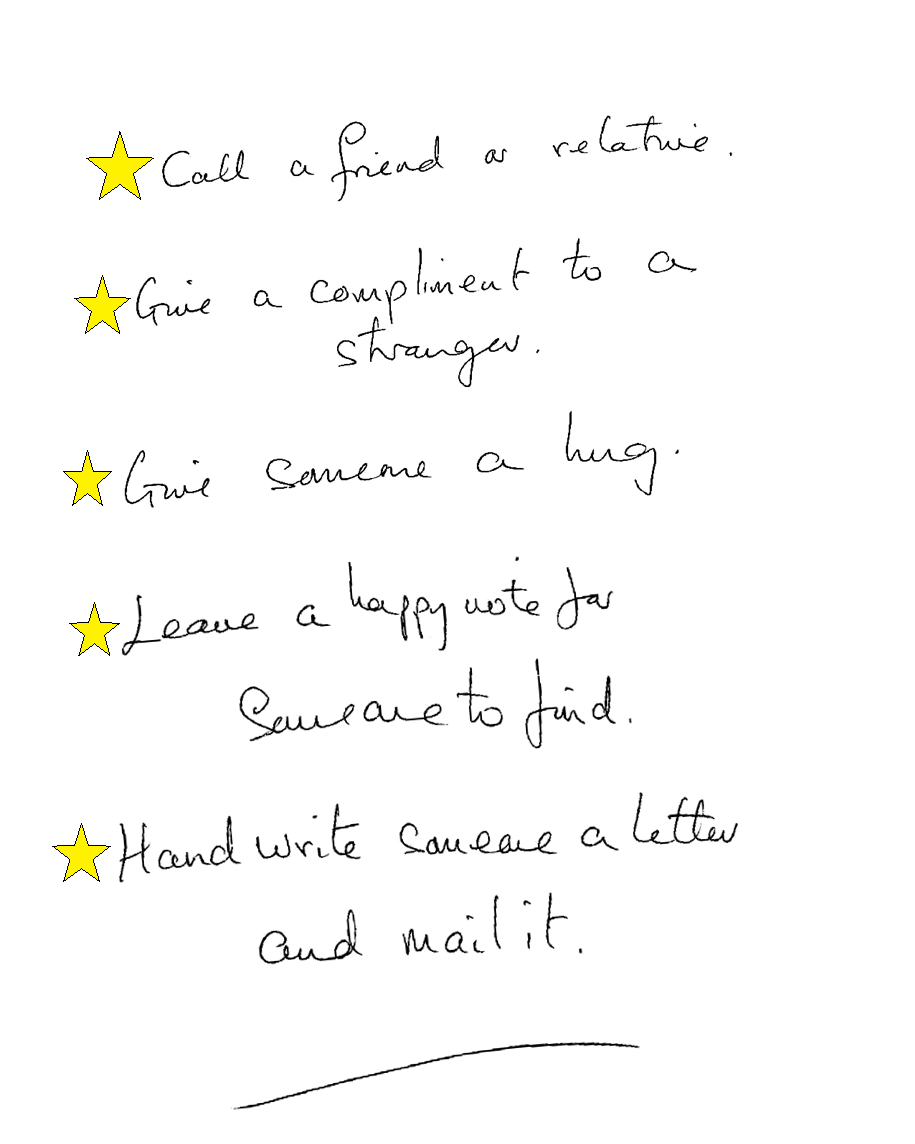 Call a friend or relative.
Give a compliment to a
stranger.
Give someone a hug.
Leave a happy note for
Someone to find.
Hand write someone a letter
and mail it.